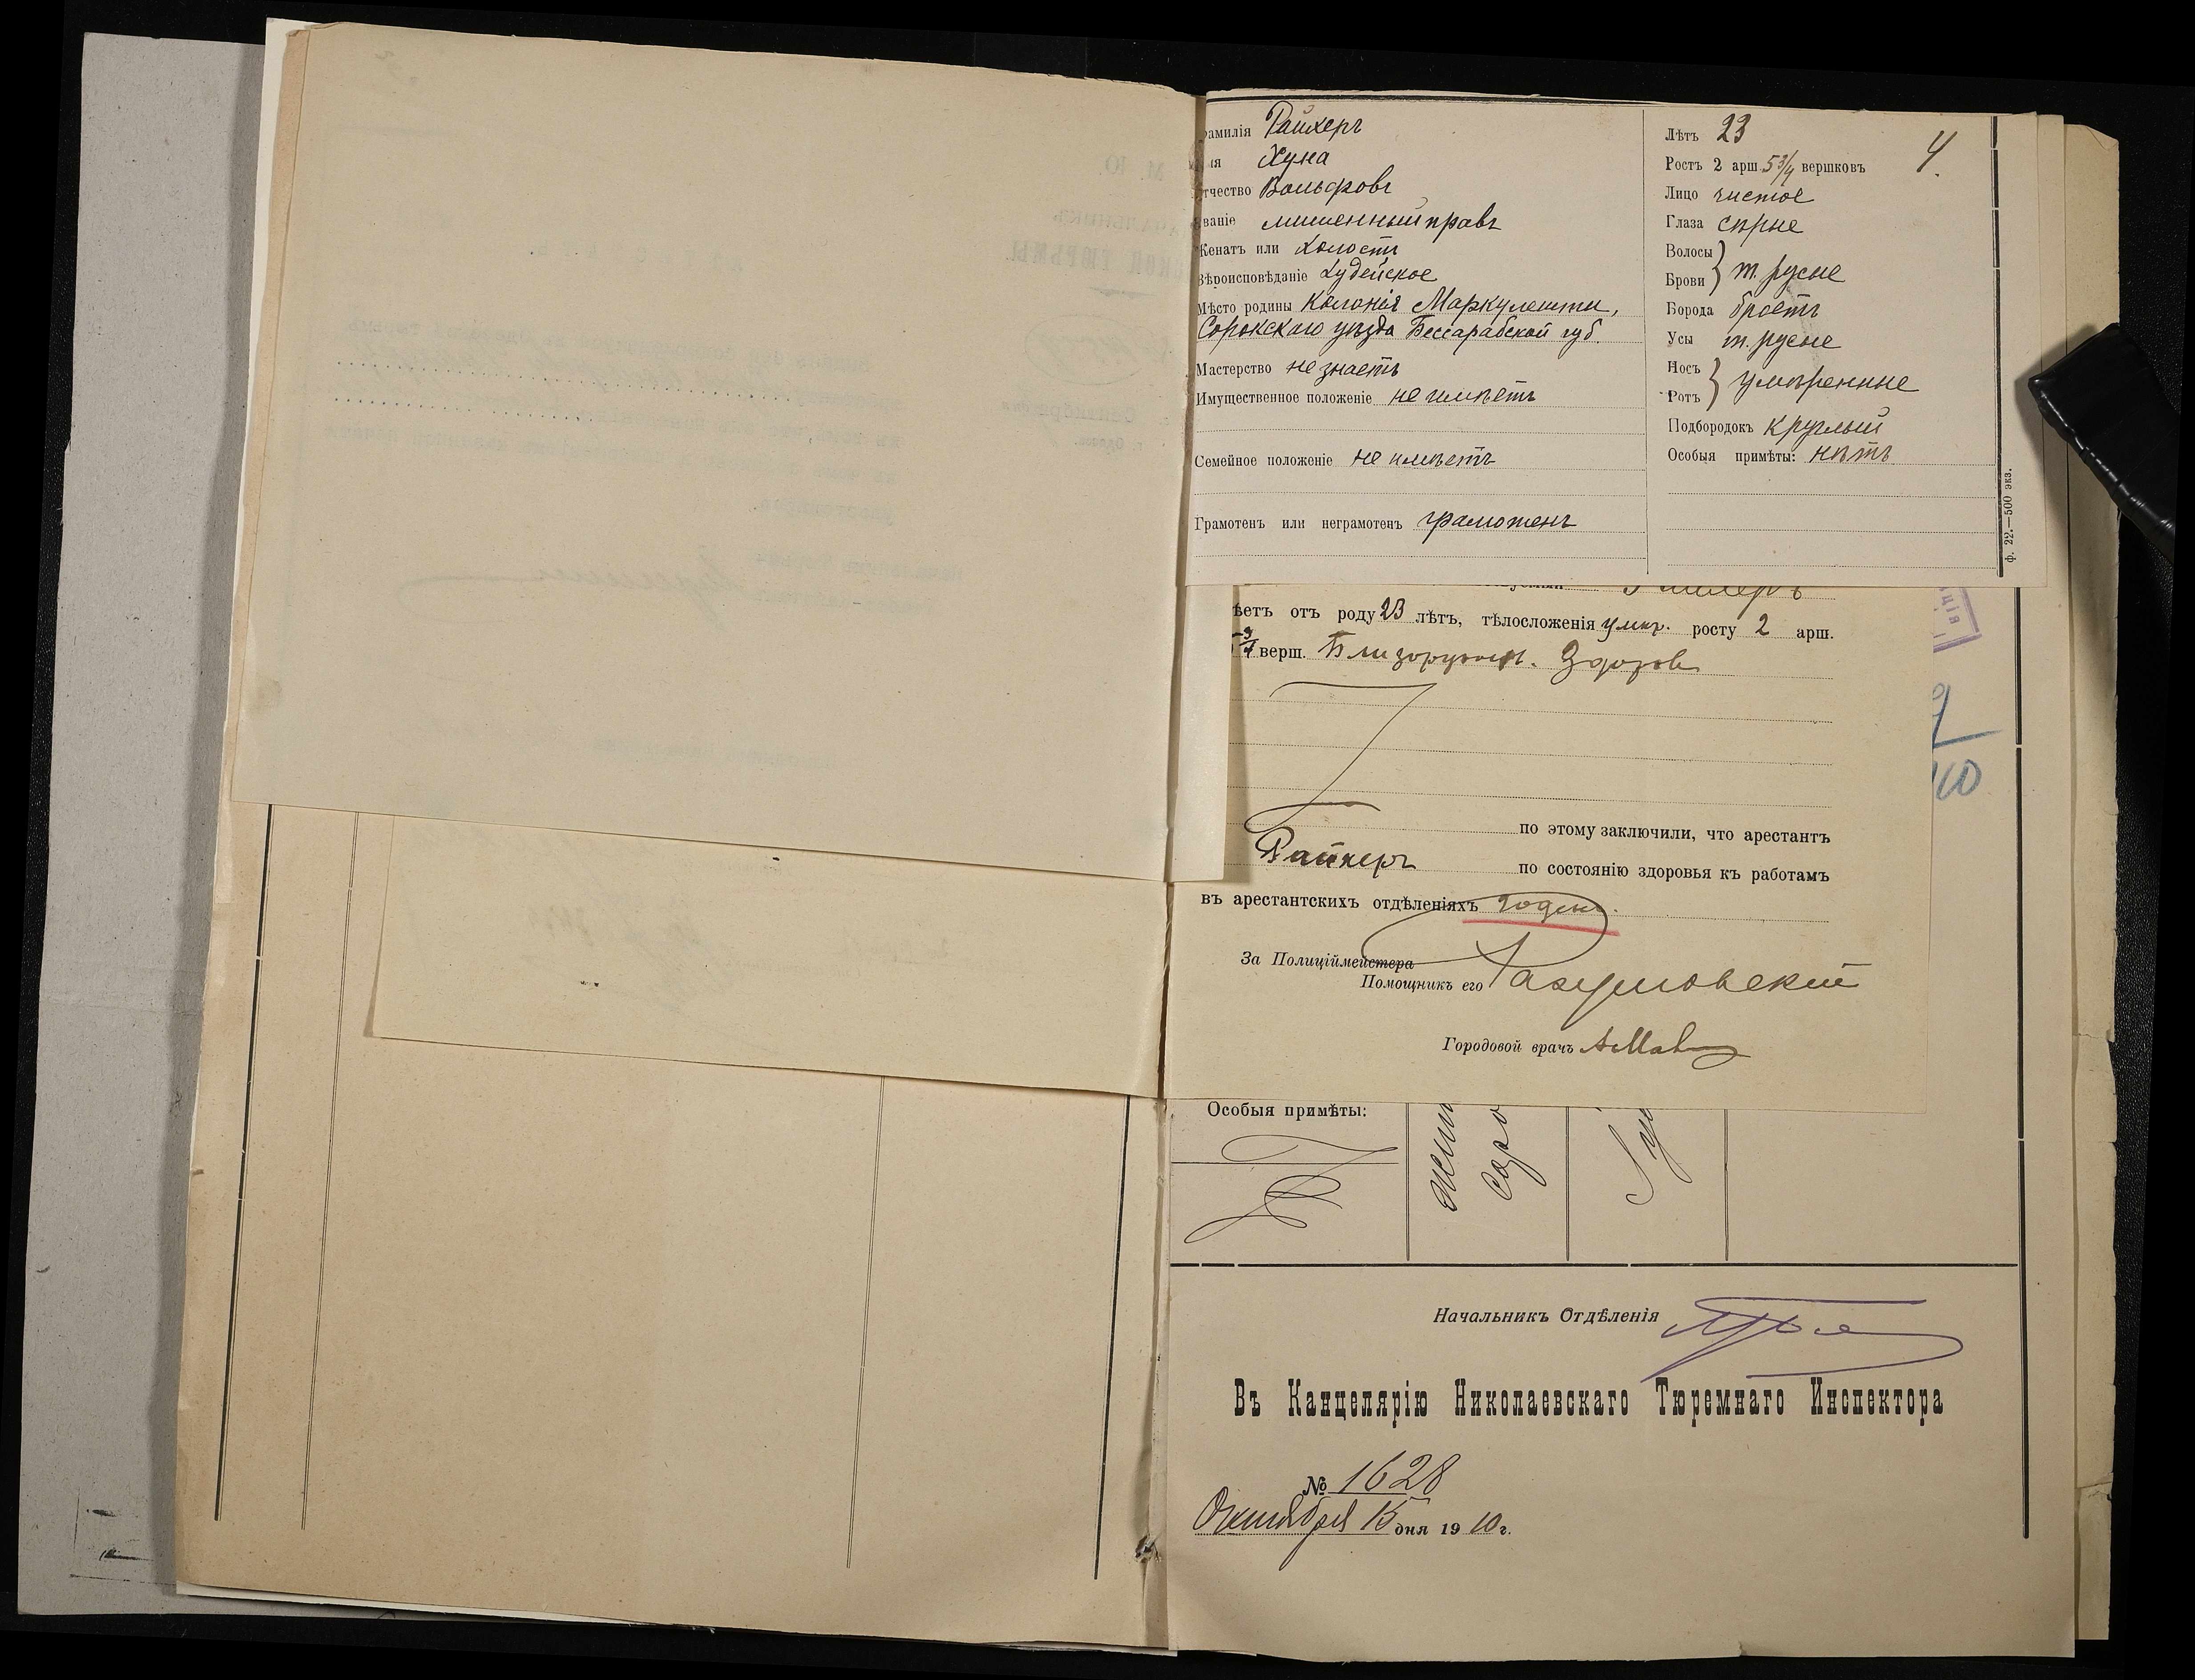 4.
Фамилія Райхеръ
Имя Хуна
Отчество Вольфовъ
Званіе лишенный правъ
Женатъ или холостъ
Вѣроисповѣданіе Іудейское
Мѣсто родины Колонія Маркулешти,
Сорокскаго уѣзда Бессарабской губ.
Мастерство не знаетъ
Имущественное положеніе не имѣетъ
Семейное положеніе не имѣетъ
Грамотенъ или неграмотенъ грамотенъ
Лѣтъ 23
Ростъ 2 арш. 5 3/4 вершковъ
Лицо чистое
Глаза сѣрые
Волосы
Брови т. русые
Борода брѣетъ
Усы т. русые
Носъ
Ротъ умѣренные
Подбородокъ круглый
Особыя примѣты: нѣтъ
ф. 22.—500 экз.
ѣетъ отъ роду 23 лѣтъ, тѣлосложенія умѣр. росту 2 арш.
5 3/4 верш. Близорукость. Здоровъ
по этому заключили, что арестантъ
Райхеръ по состоянію здоровья къ работамъ
въ арестантскихъ отдѣленіяхъ годенъ.
За Полиціймейстера
Помощникъ его Разумовскій
Городовой врачъ
Особыя примѣты:
Начальникъ Отдѣленія
Въ Канцелярію Николаевскаго Тюремнаго Инспектора
№ 1628
Октября 15 дня 1910 г.